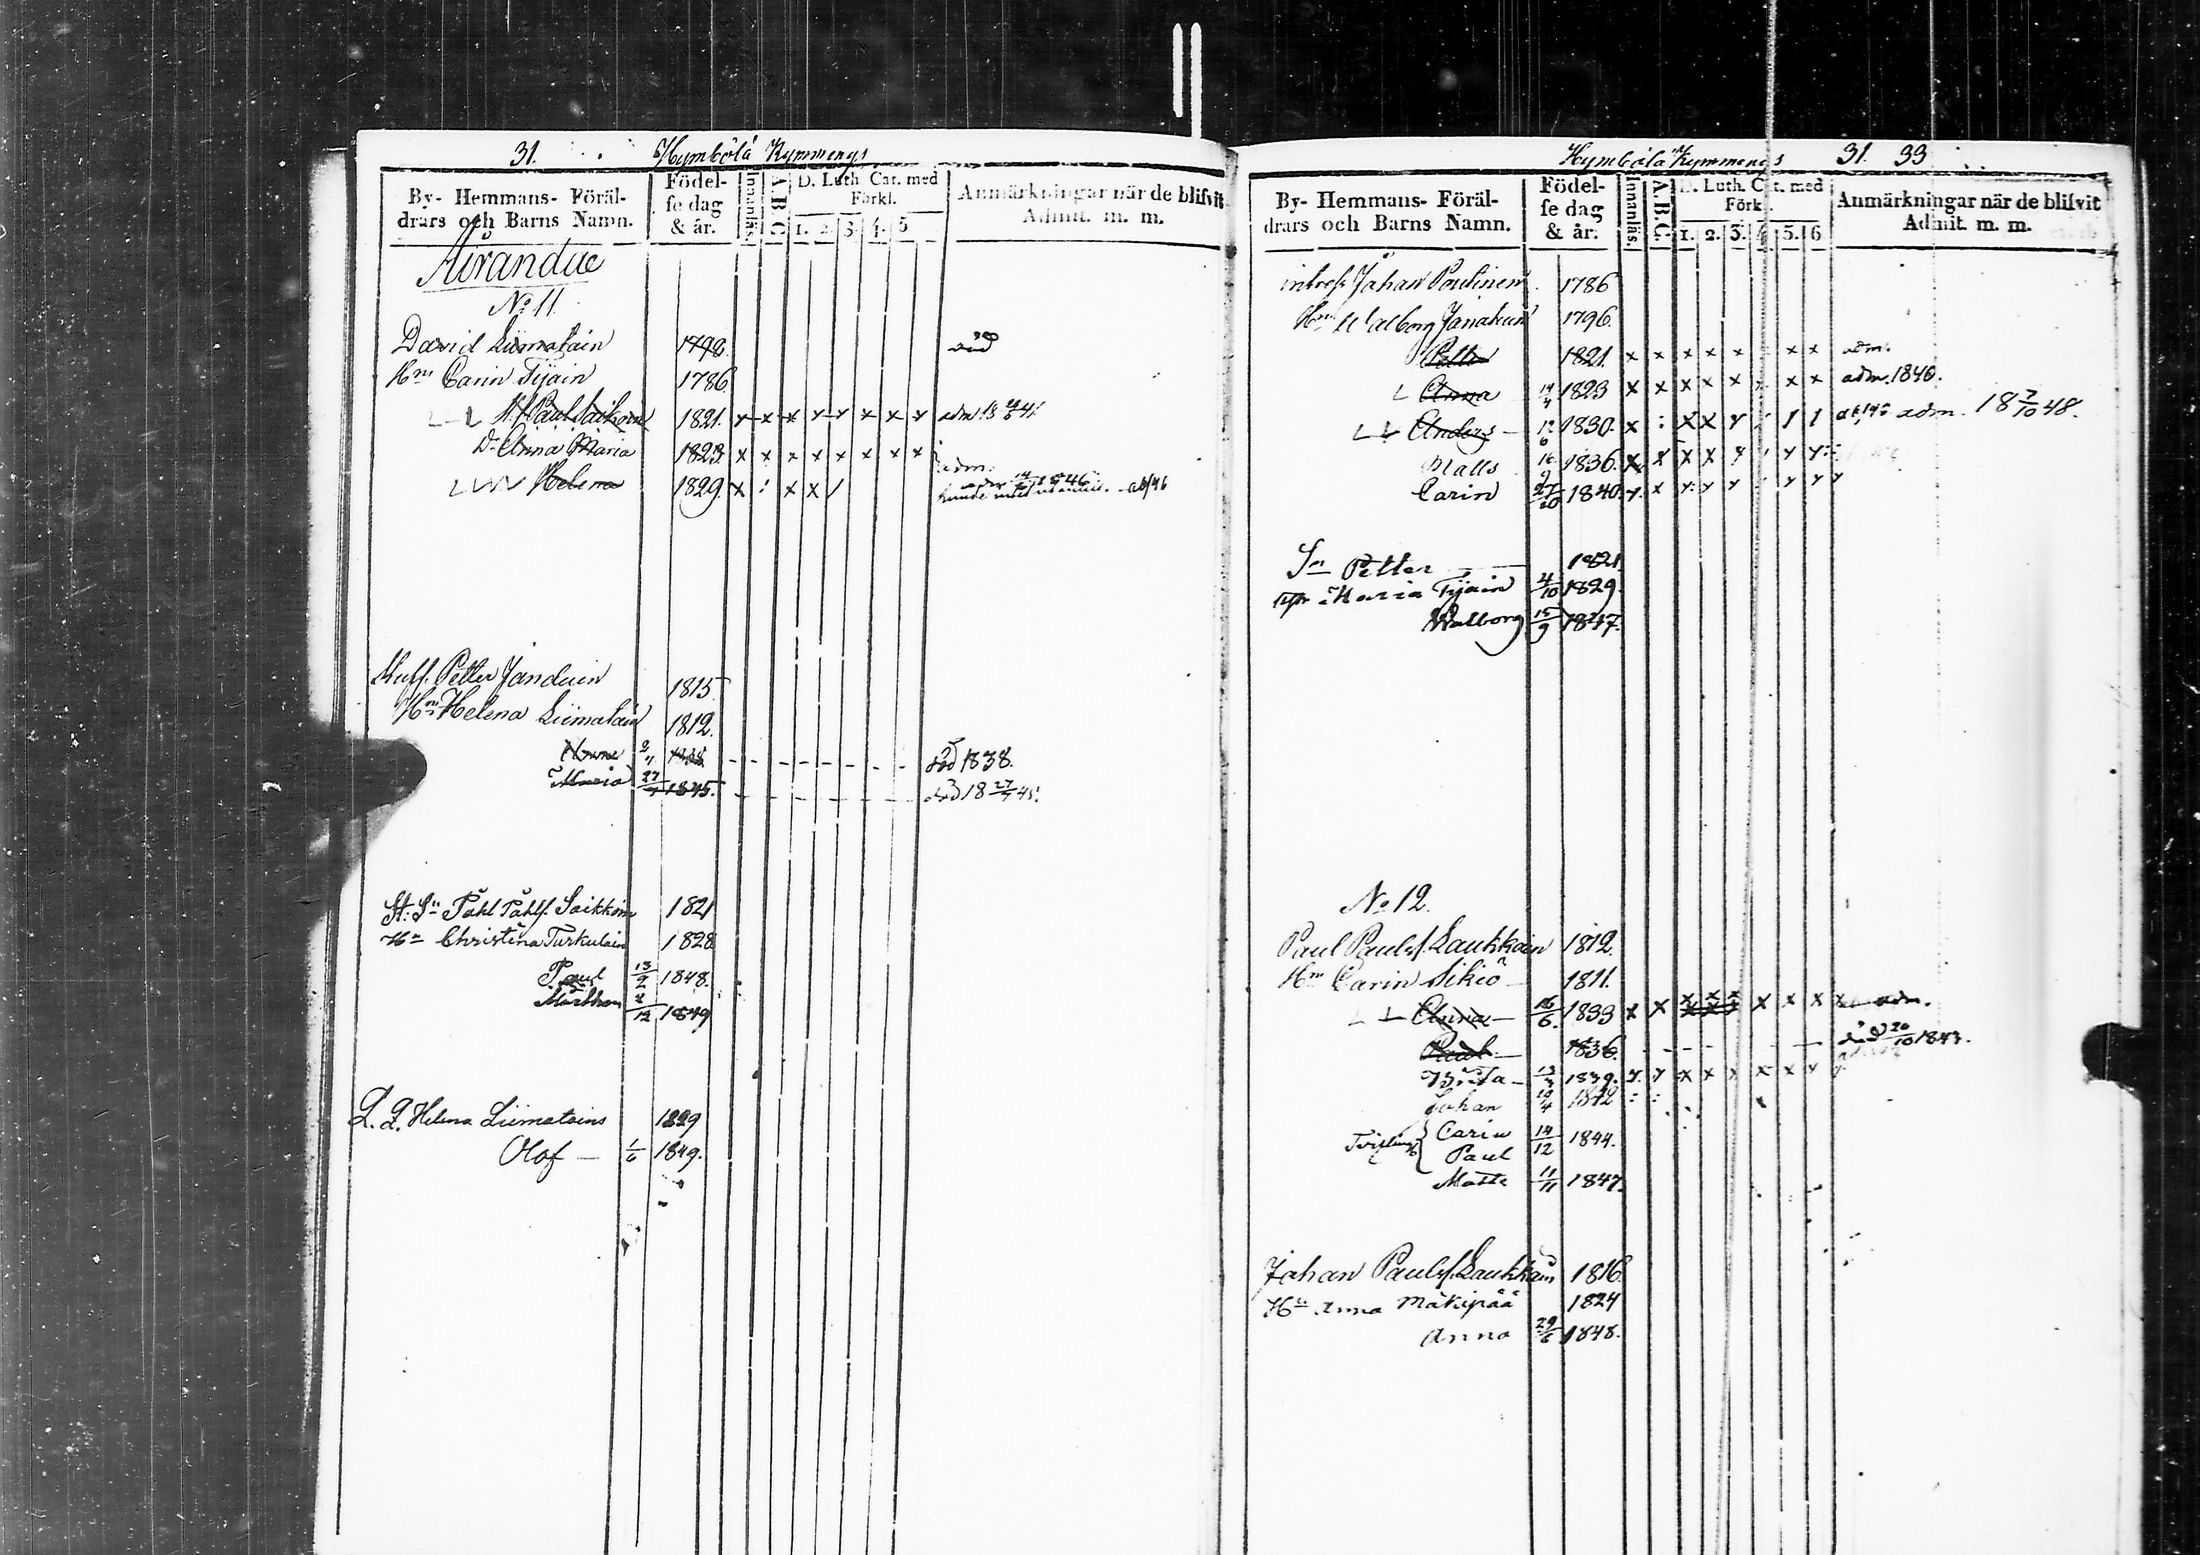 31. Hymbölä Kymmenys
By- Hemmans- Föräl-
drars och Barns Namn.
Födel-
se dag
& år.
Innanläs.
A.B.C.
D. Luth. Cat. med
Förkl.
1. 2. 3. 4. 5
Anmärkningar när de blifvit
Admit. m. m.
No 11.
David Liimatain 1792. död
Hm Carin Tijain 1786
Paul Saikoin 1821. x x x x x x x x adm.
D. Anna Maria 1823. x x x x x x x x x adm.
Helena 1829. x : x x /
Petter Janduin 1815
Hm Helena Liimatain 1812.
död 1838.
Maria 27 1845. död 18 27 45.
St: Sn Påhl Påhlss. Saikkoin 1821
Hn Christina Turkulain 1828
Paul 13/2 1848.
12 1849
L. Q. Helena Liimatains 1829
Olof — 1/6 1849.
Hymbölä Kymmenys 31. 33
By- Hemmans- Föräl-
drars och Barns Namn.
Födel-
se dag
& år.
Innanläs.
A.B.C.
D. Luth. Cat. med
Förkl.
1. 2. 3. 4. 5. 6
Anmärkningar när de blifvit
Admit. m. m.
Johan Poutinen 1786
Hm Walborg 1796.
Petter 1821. x x x x x x x adm.
L Anna 1823 x x x x x x x adm. 1840.
Anders — 12/6 1830. x : x x adm. 18 7/10 48.
Matts 16/9 1836. x x x x
Carin 27/10 1840.
Sn Petter — 1821
Maria Tijain 4/10 1829.
Walborg 15/9 1847.
No 12.
Paul Paulss. Laukkain 1812.
Hm Carin Sikiö — 1811.
L L Anna — 16/6. 1833 x x x x x x x x adm.
Paul — 1836. död 20/10 1843.
Brita — 13/3 1839.
Johan 1842
Carin 14/12 1844.
Paul
Matts 11/11 1847.
Johan Paulss. Laukkain 1816.
Hn Anna Mäkipää 1824
Anna 29/6 1848.